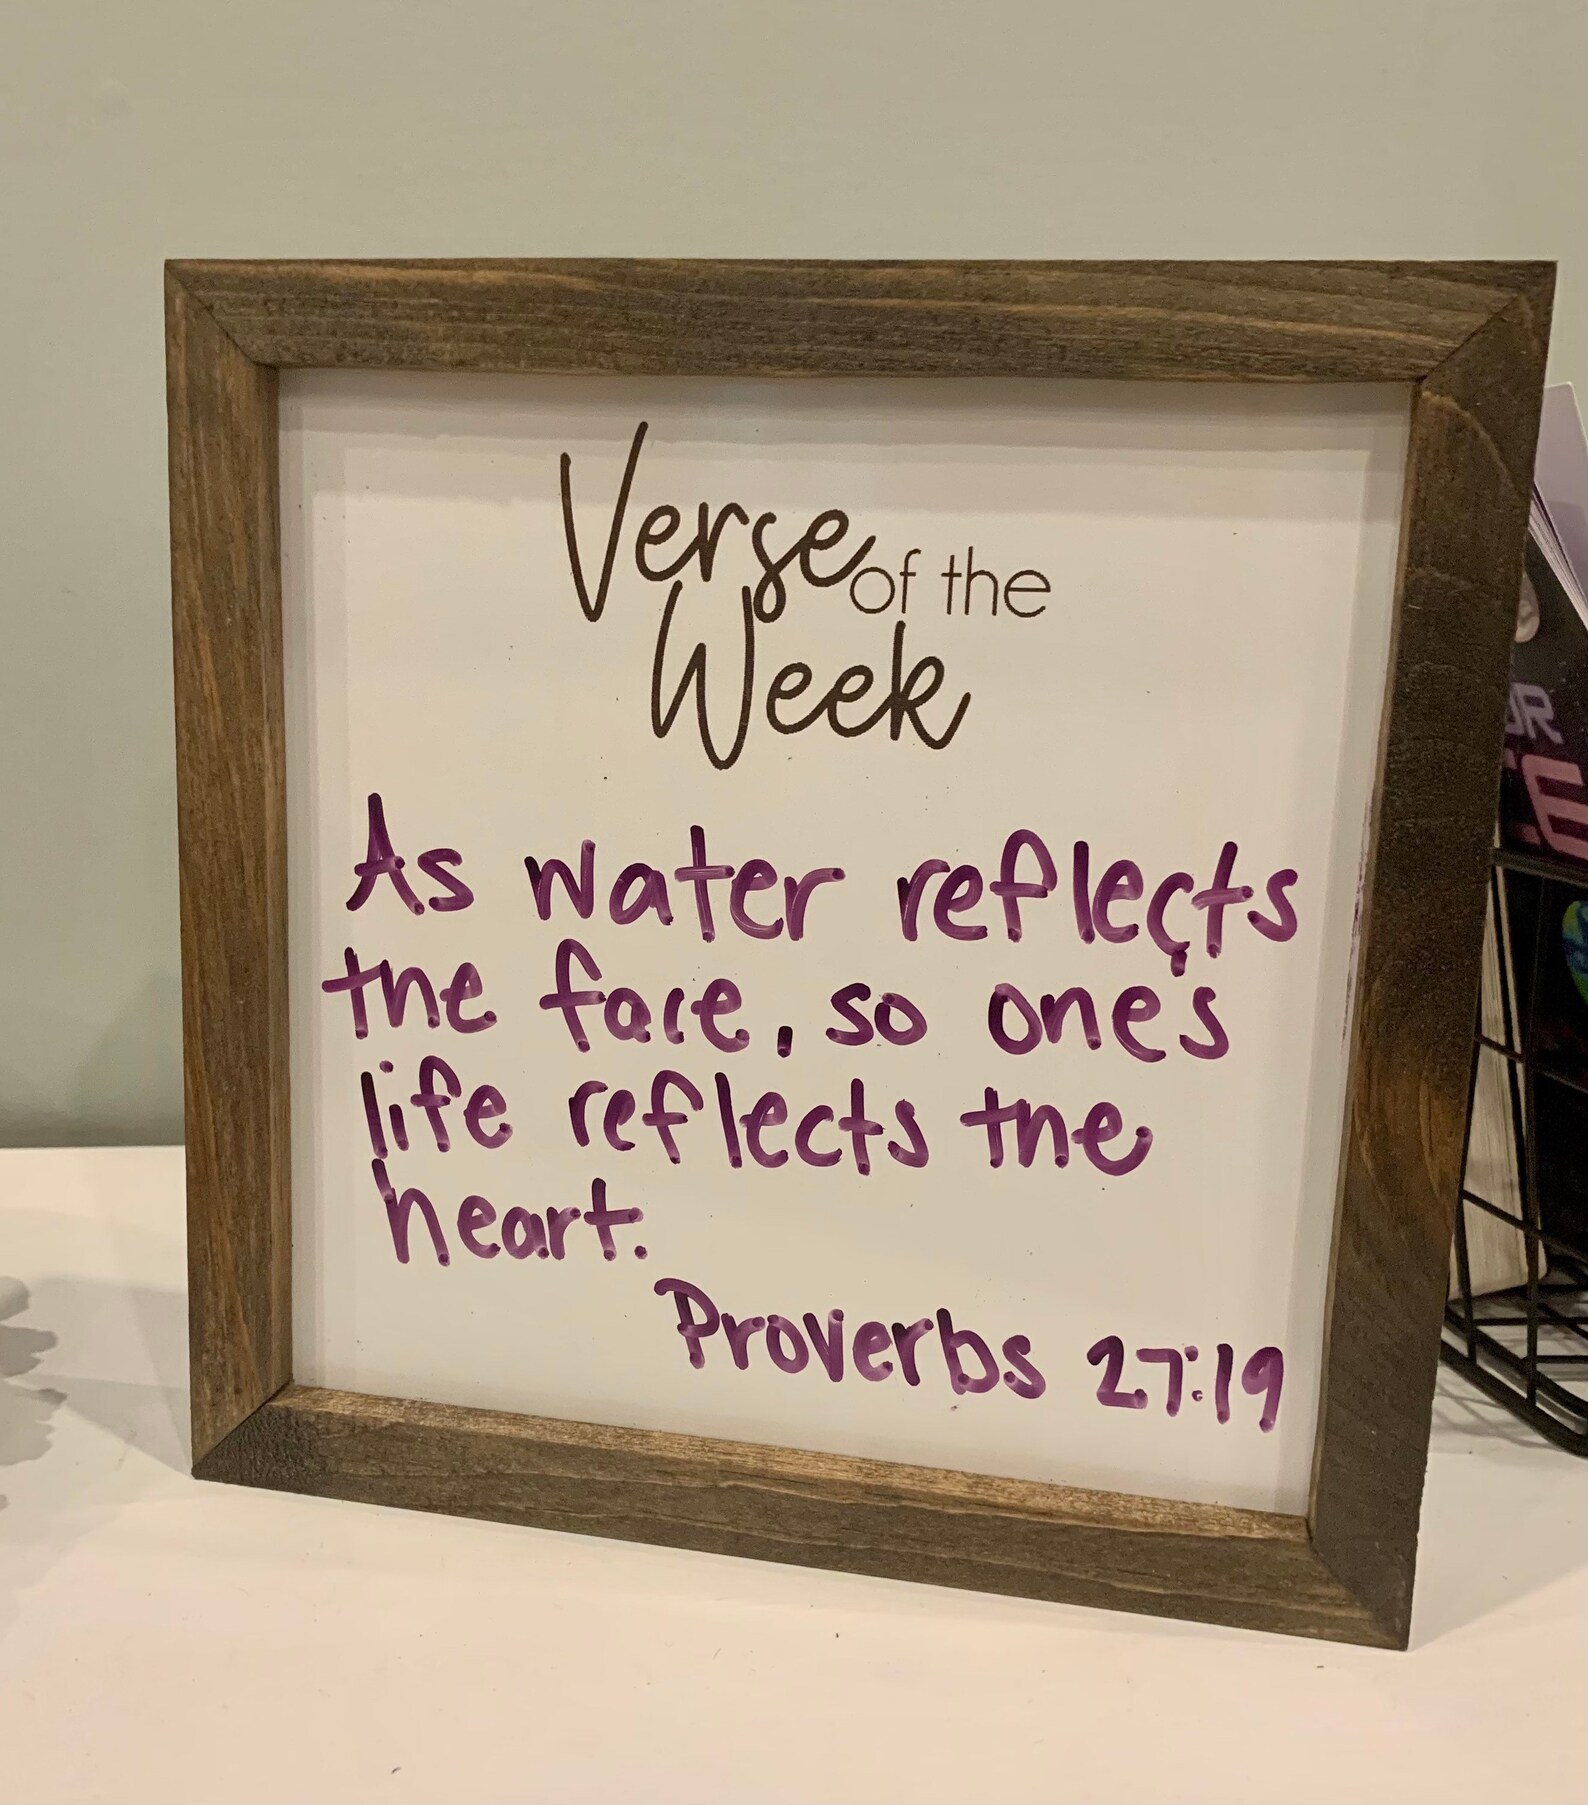 Verse of the
Week
As water reflects
the face, so one's
life reflects the
heart.
Proverbs 27:19